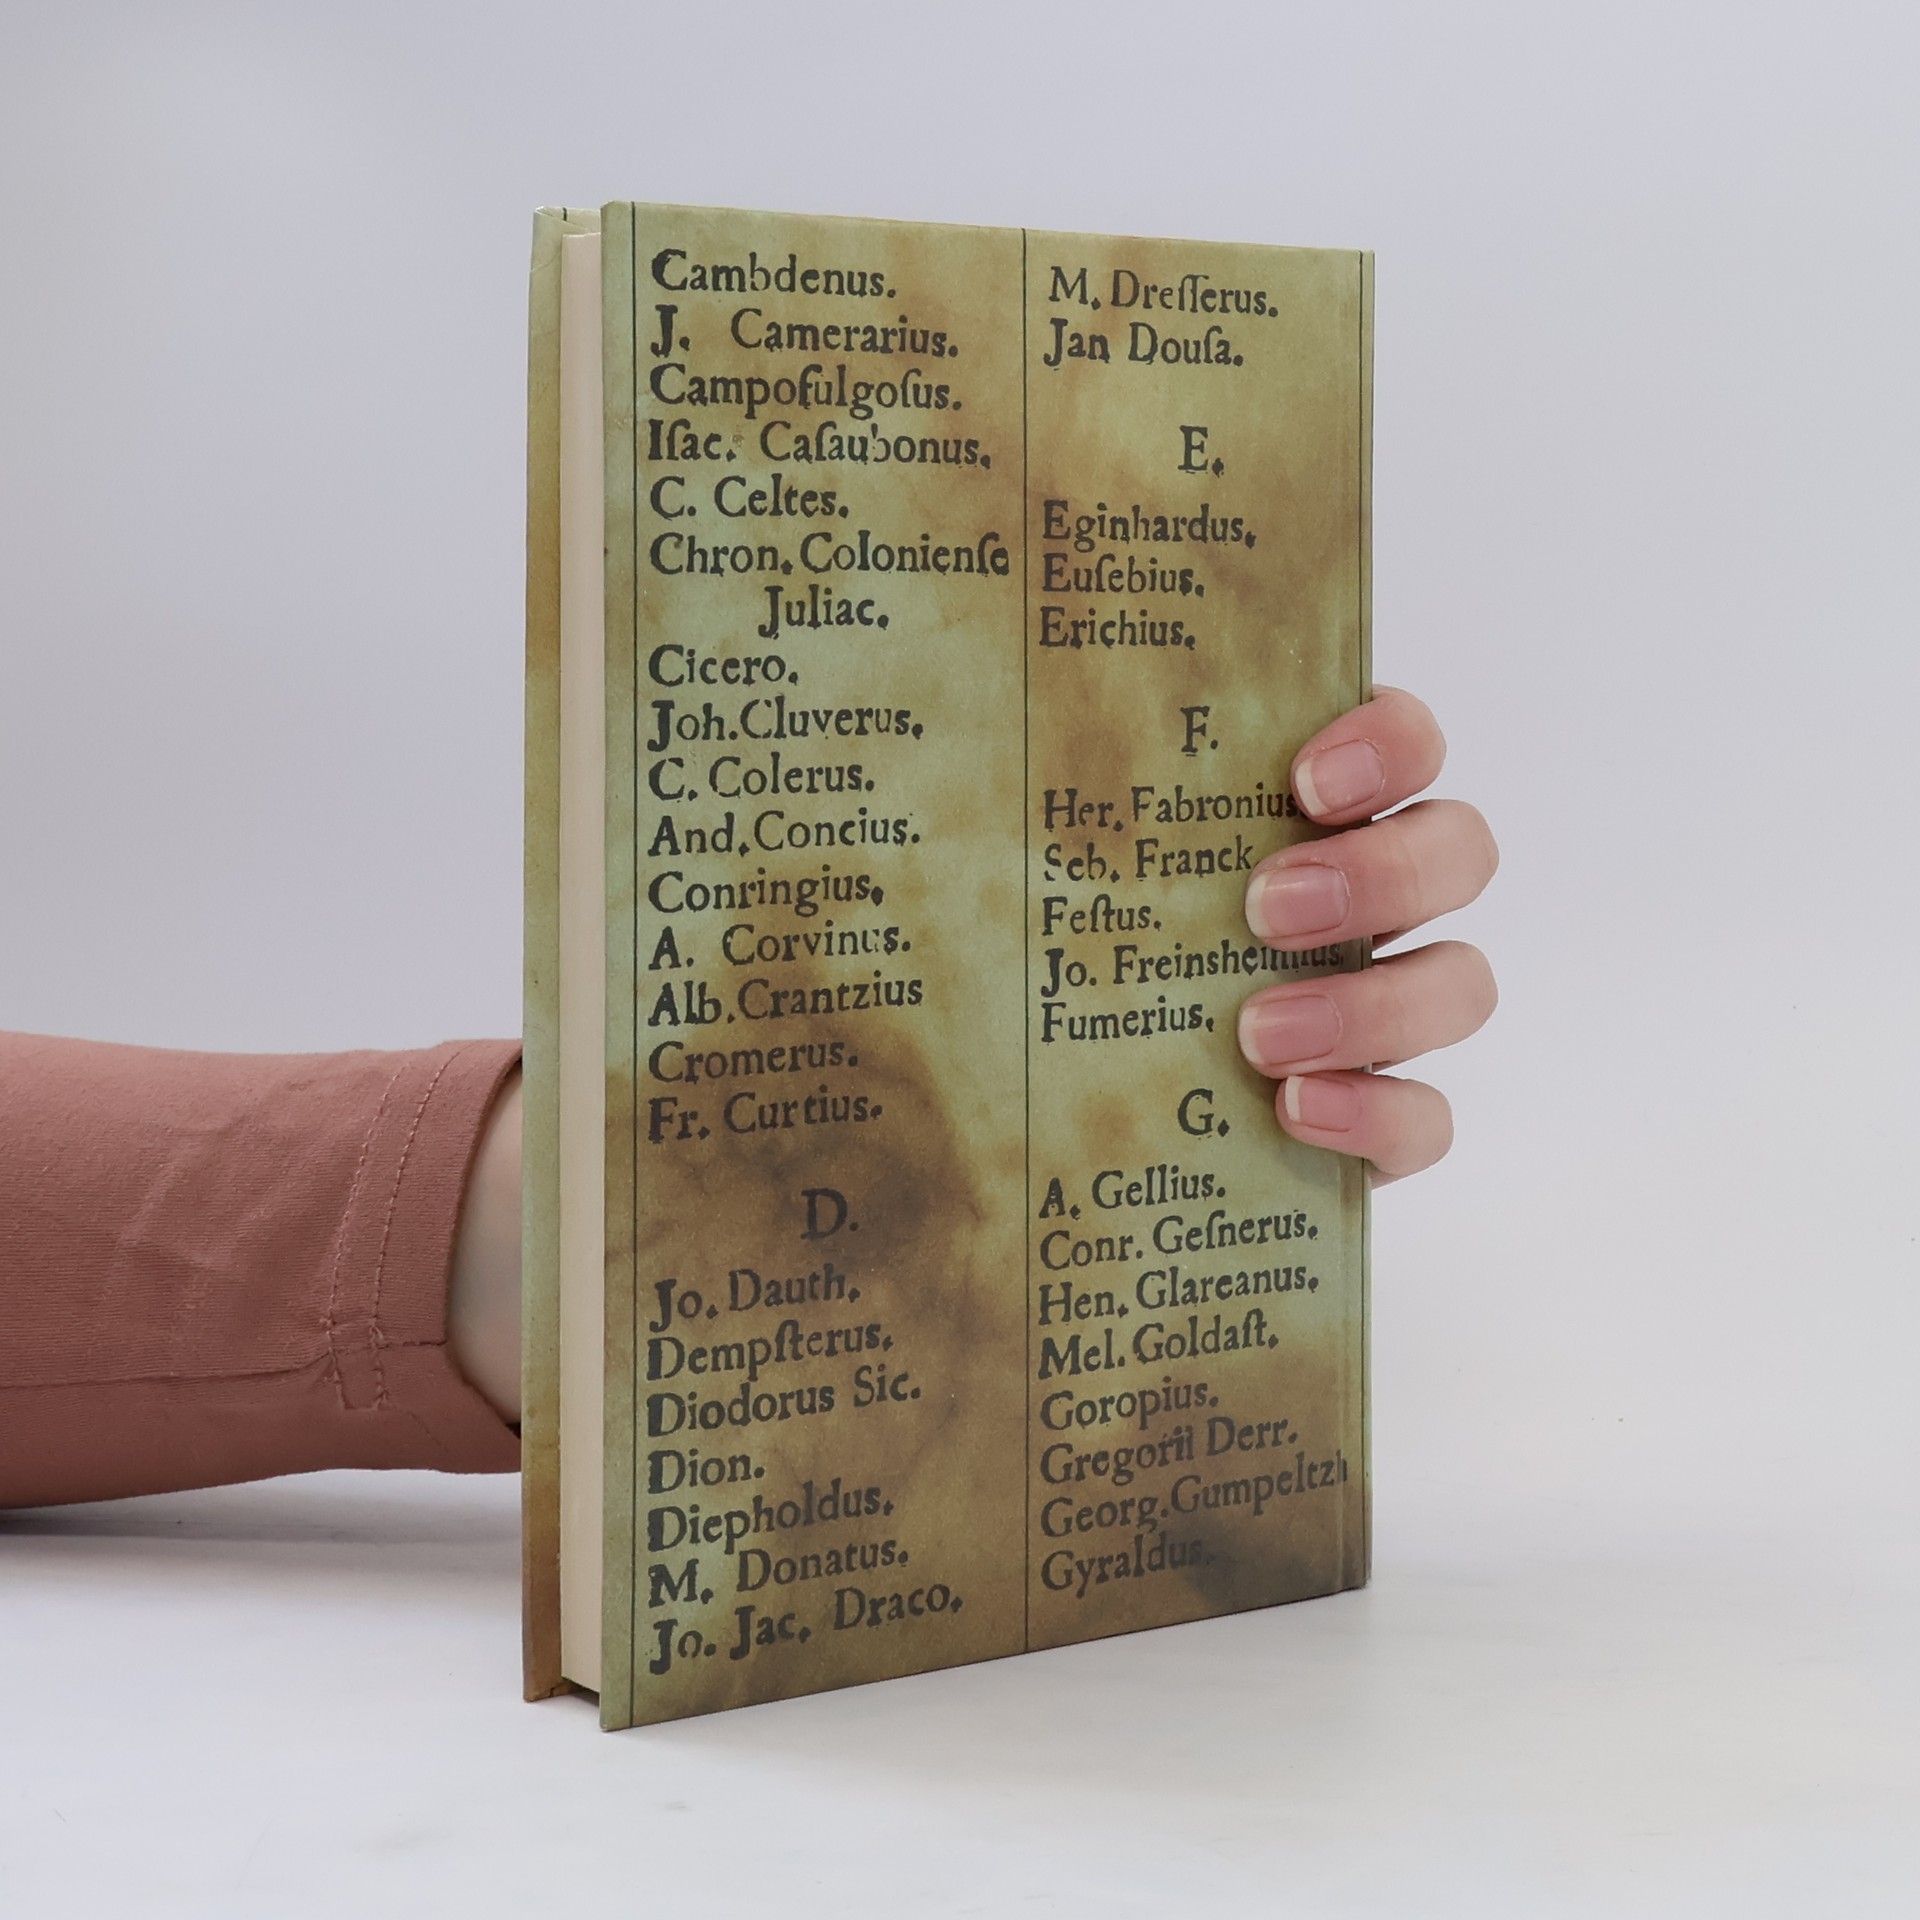 Cambdenus.
J. Camerarius.
Campofulgoſus.
Iſac. Caſaubonus.
C. Celtes.
Chron. Colonienſe
Juliac.
Cicero.
Joh. Cluverus.
C. Colerus.
And. Concius.
Conringius.
A. Corvinus.
Alb. Crantzius
Cromerus.
Fr. Curtius.
D.
Jo. Dauth.
Dempſterus.
Diodorus Sic.
Dion.
Diepholdus.
M. Donatus.
Jo. Jac. Draco.
M. Dreſſerus.
Jan Douſa.
E.
Eginhardus.
Euſebius.
Erichius.
F.
Her. Fabronius
Seb. Franck
Feſtus.
Jo. Freinshemius.
Fumerius.
G.
A. Gellius.
Conr. Geſnerus.
Hen. Glareanus.
Mel. Goldaſt.
Goropius.
Gregorii Derr.
Georg. Gumpeltzh
Gyraldus.